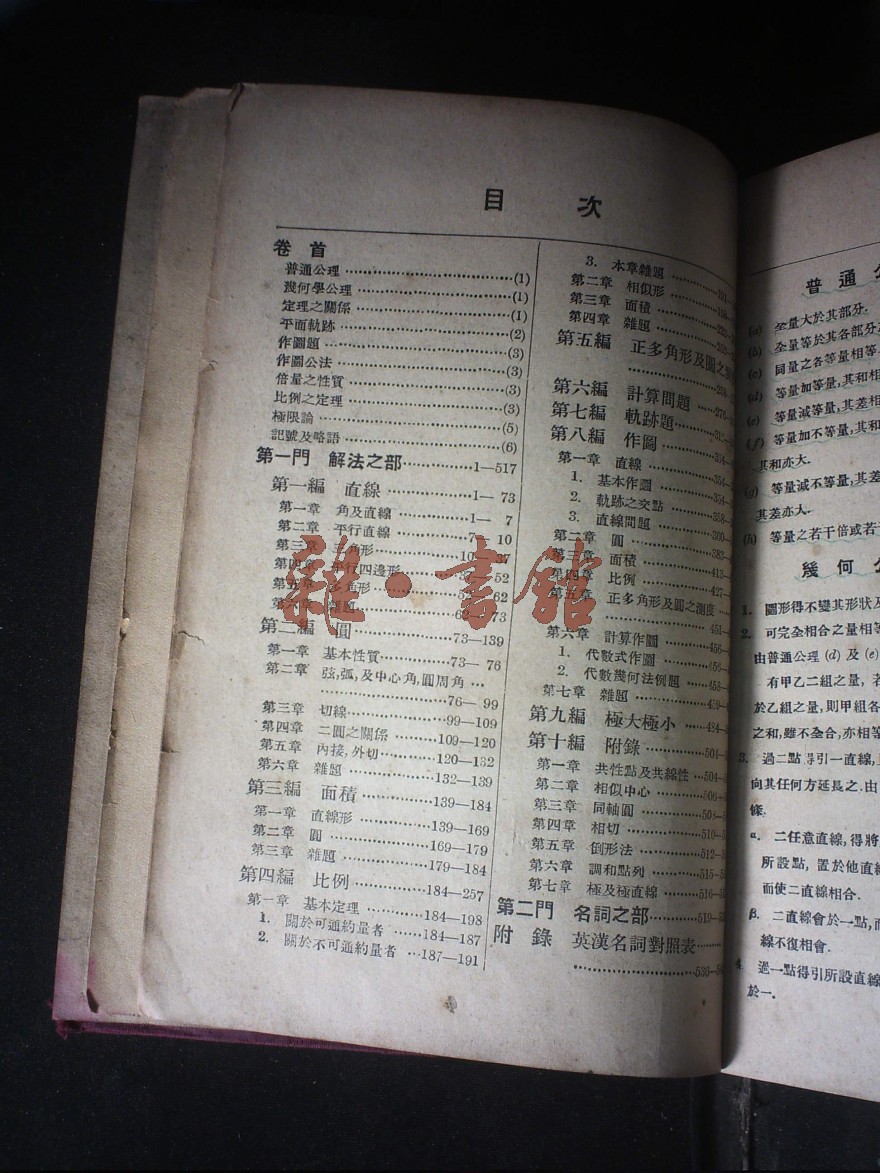 目 次
卷 首
普通公理 ……………………(1)
幾何學公理 …………………(1)
定理之關係 …………………(1)
平面軌跡 ……………………(2)
作圖題 ………………………(3)
作圖公法 ……………………(3)
倍量之性質 …………………(3)
比例之定理 …………………(3)
極限論 ………………………(5)
記號及略語 …………………(6)
第一門 解法之部 …………1—517
第一編 直線 ……………1— 73
第一章 角及直線 …………1— 7
第二章 平行直線 …………7— 10
第三章 三角形 …………10— 37
第四章 平行四邊形 ……37— 52
第五章 多角形 …………52— 62
第六章 雜題 ……………62—73
第二編 圓 ………………73—139
第一章 基本性質 ………73— 76
第二章 弦,弧,及中心角,圓周角 …
……………………76— 99
第三章 切線 ……………99—109
第四章 二圓之關係 ……109—120
第五章 內接,外切 ………120—132
第六章 雜題 ……………132—139
第三編 面積 ……………139—184
第一章 直線形 …………139—169
第二章 圓 ………………169—179
第三章 雜題 ……………179—184
第四編 比例 ……………184—257
第一章 基本定理 ………184—198
1. 關於可通約量者 ……184—187
2. 關於不可通約量者 …187—191
3. 本章雜題 ……………191—
第二章 相似形 …………
第三章 面積 ……………
第四章 雜題 ……………
第五編 正多角形及圓之
……………………258—
第六編 計算問題 ………276—
第七編 軌跡題 …………312—
第八編 作圖 ……………354—
第一章 直線 ……………354—
1. 基本作圖 ……………354—
2. 軌跡之交點 …………358—
3. 直線問題 ……………360—
第二章 圓 ………………383—
第三章 面積 ……………413—
第四章 比例 ……………427—
第五章 正多角形及圓之測度 ……
……………………451—
第六章 計算作圖 ………456—
1. 代數式作圖 …………456—
2. 代數幾何法例題 ……458—
第七章 雜題 ……………459—
第九編 極大極小 ………484—
第十編 附錄 ……………504—
第一章 共性點及共線性 …504—
第二章 相似中心 ………506—
第三章 同軸圓 …………508—
第四章 相切 ……………510—
第五章 倒形法 …………512—
第六章 調和點列 ………515—
第七章 極及極直線 ……516—
第二門 名詞之部 ………519—
附 錄 英漢名詞對照表 ……
……………………536—
普 通 公
(a) 全量大於其部分.
(b) 全量等於其各部分
(c) 同量之各等量相等
(d) 等量加等量,其和相
(e) 等量減等量,其差相
(f) 等量加不等量,其和
其和亦大.
(g) 等量減不等量,其差
其差亦大.
(h) 等量之若干倍或若干
幾 何 公
1. 圖形得不變其形狀及
2. 可完全相合之量相等
由普通公理 (d) 及 (e)
有甲乙二組之量, 若
於乙組之量,則甲組各
之和,雖不全合,亦相等
3. 過二點得引一直線,
向其任何方延長之.由
條.
α. 二任意直線,得將
所設點, 置於他直線
而使二直線相合.
β. 二直線會於一點,而
線不復相會.
4. 過一點得引所設直線
於一.
雜·書館